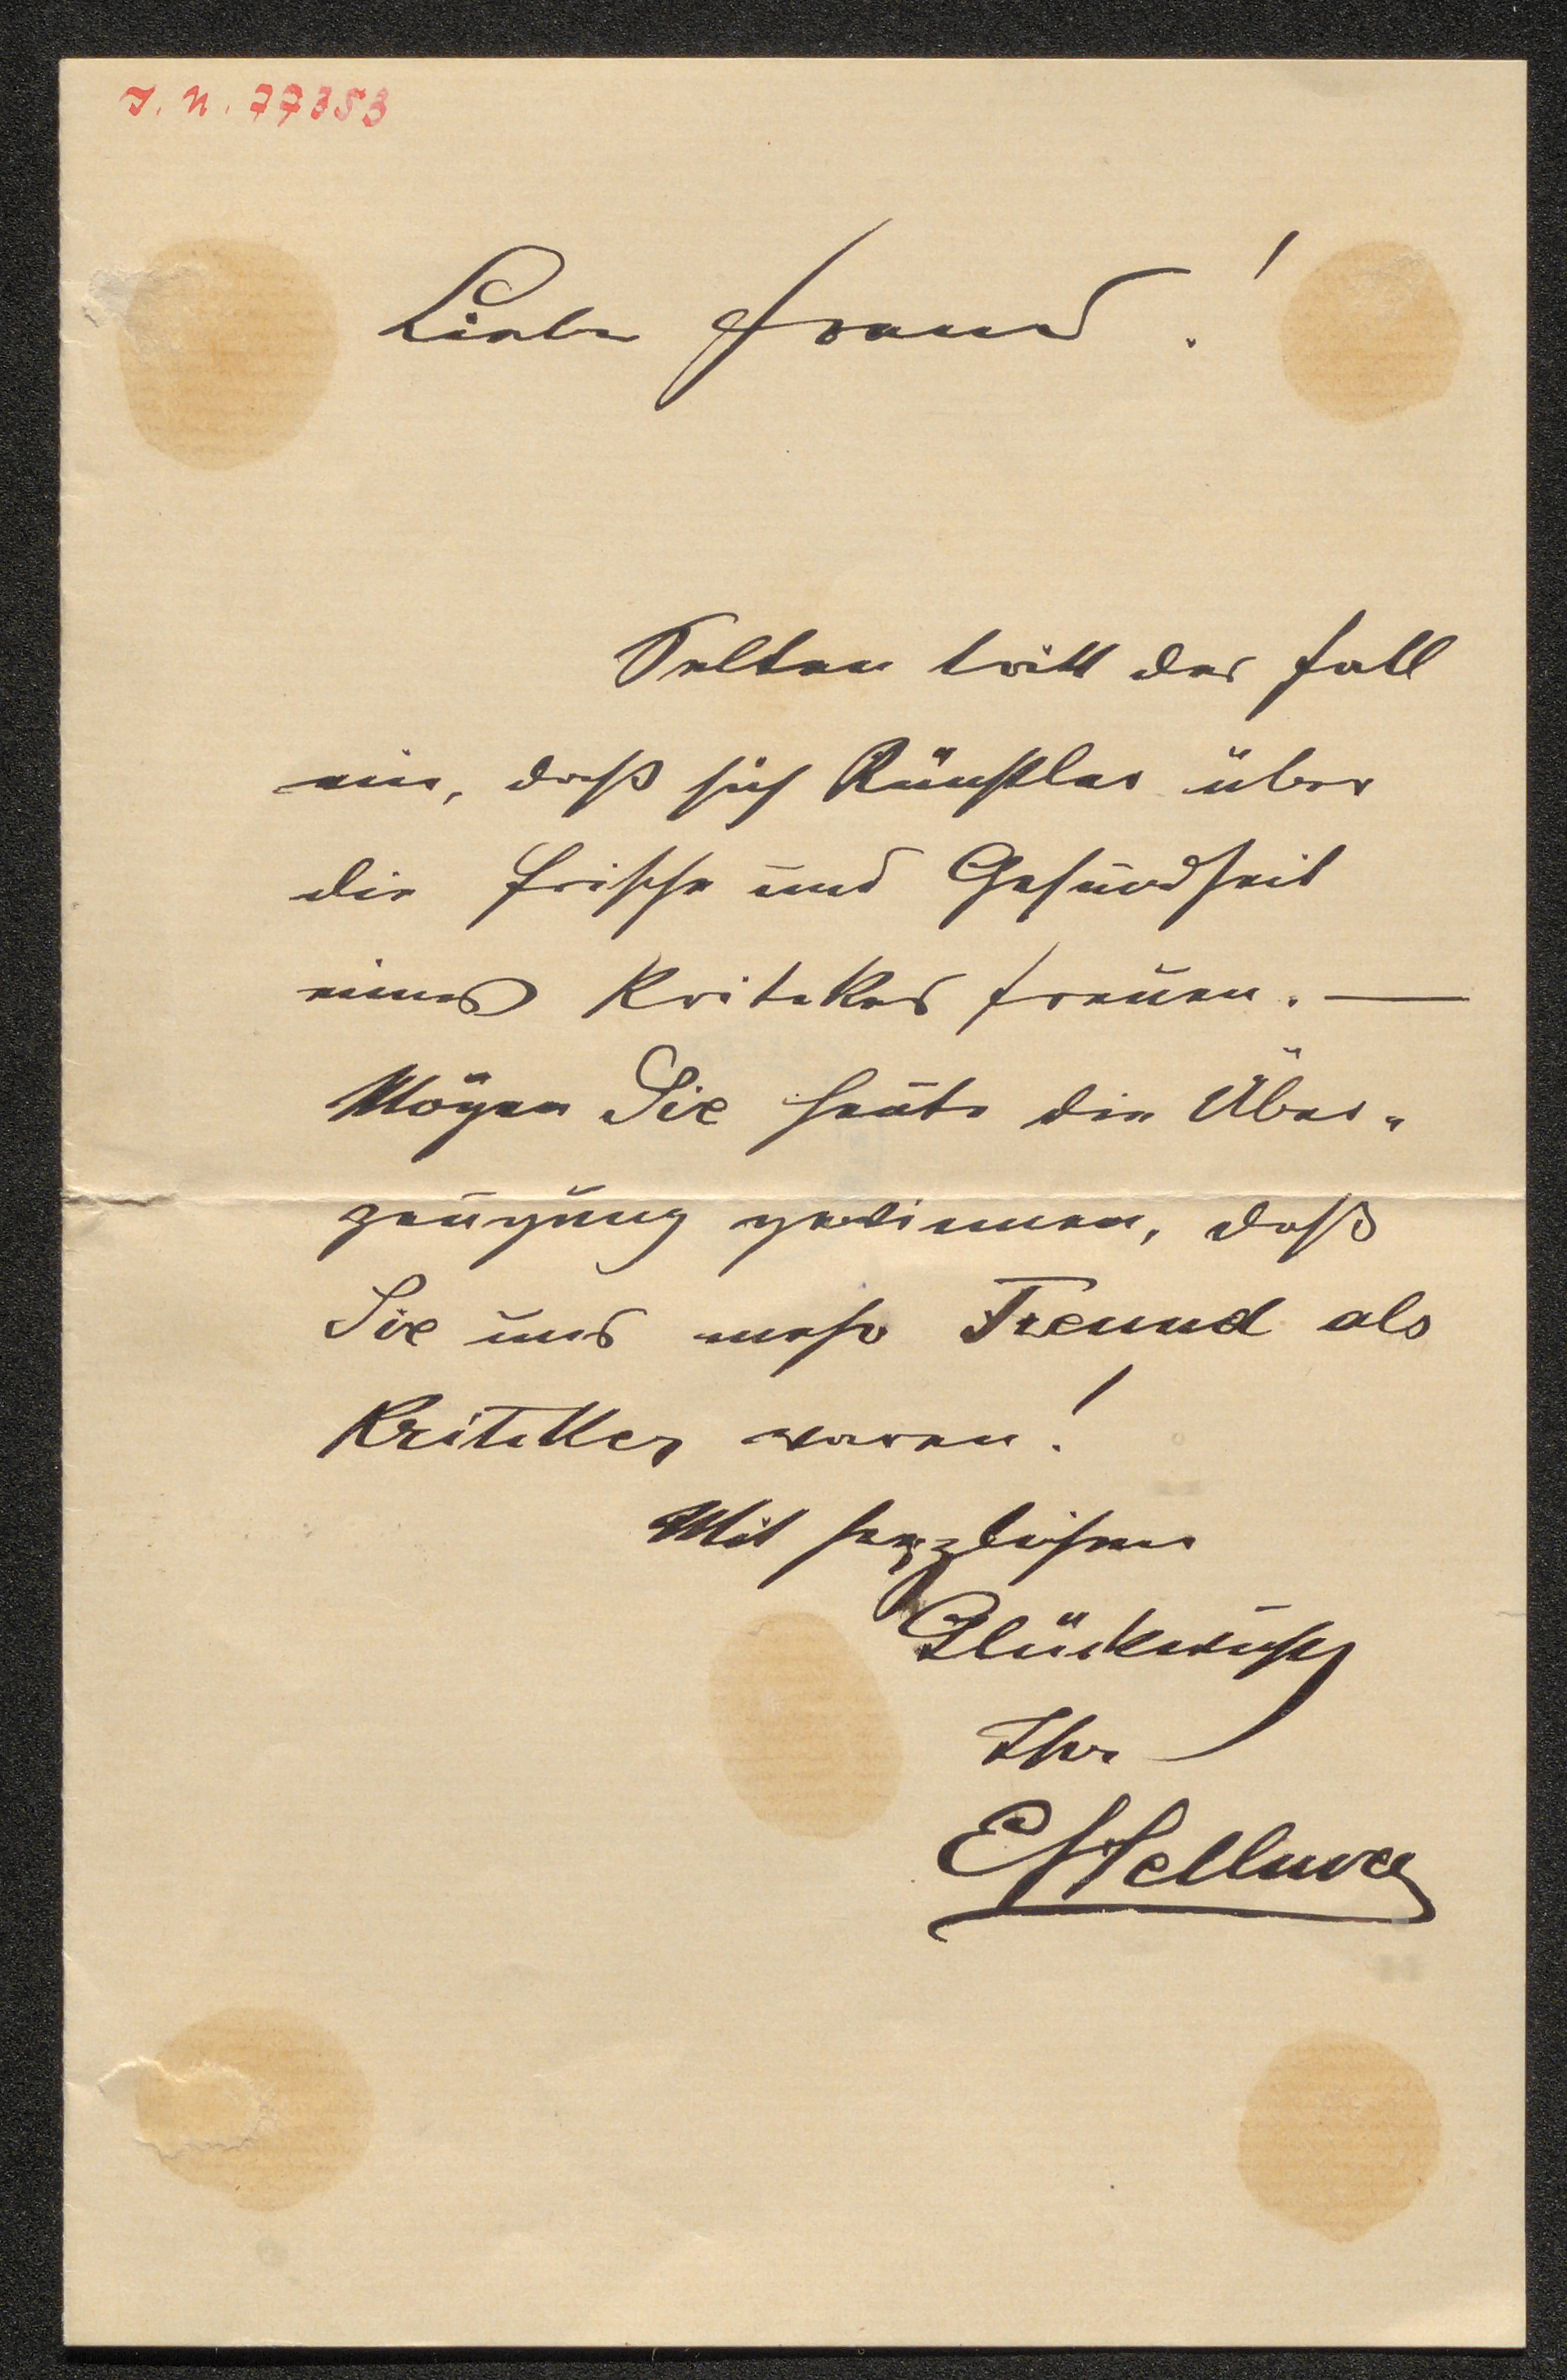 I. N. 77353
Lieber Freund!
Selten tritt der Fall
ein, daß sich Künstler über
die Frische und Gesundheit
eines Kritikers freuen. —
Mögen Sie heute die Über-
zeugung gewinnen, daß
Sie uns mehr Freund als
Kritiker waren!
Mit herzlichem
Glückwunsch
Ihr
EHellmer